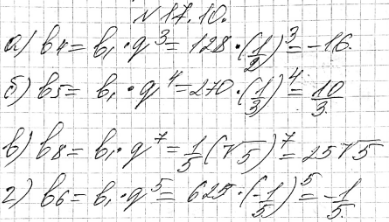 №17.10.
а) b₄ = b₁·q³ = 128·(1/2)³ = -16.
б) b₅ = b₁·q⁴ = 270·(1/3)⁴ = 10/3.
в) b₈ = b₁·q⁷ = 1/5(√5)⁷ = 25√5
г) b₆ = b₁·q⁵ = 625·(-1/5)⁵ = -1/5.